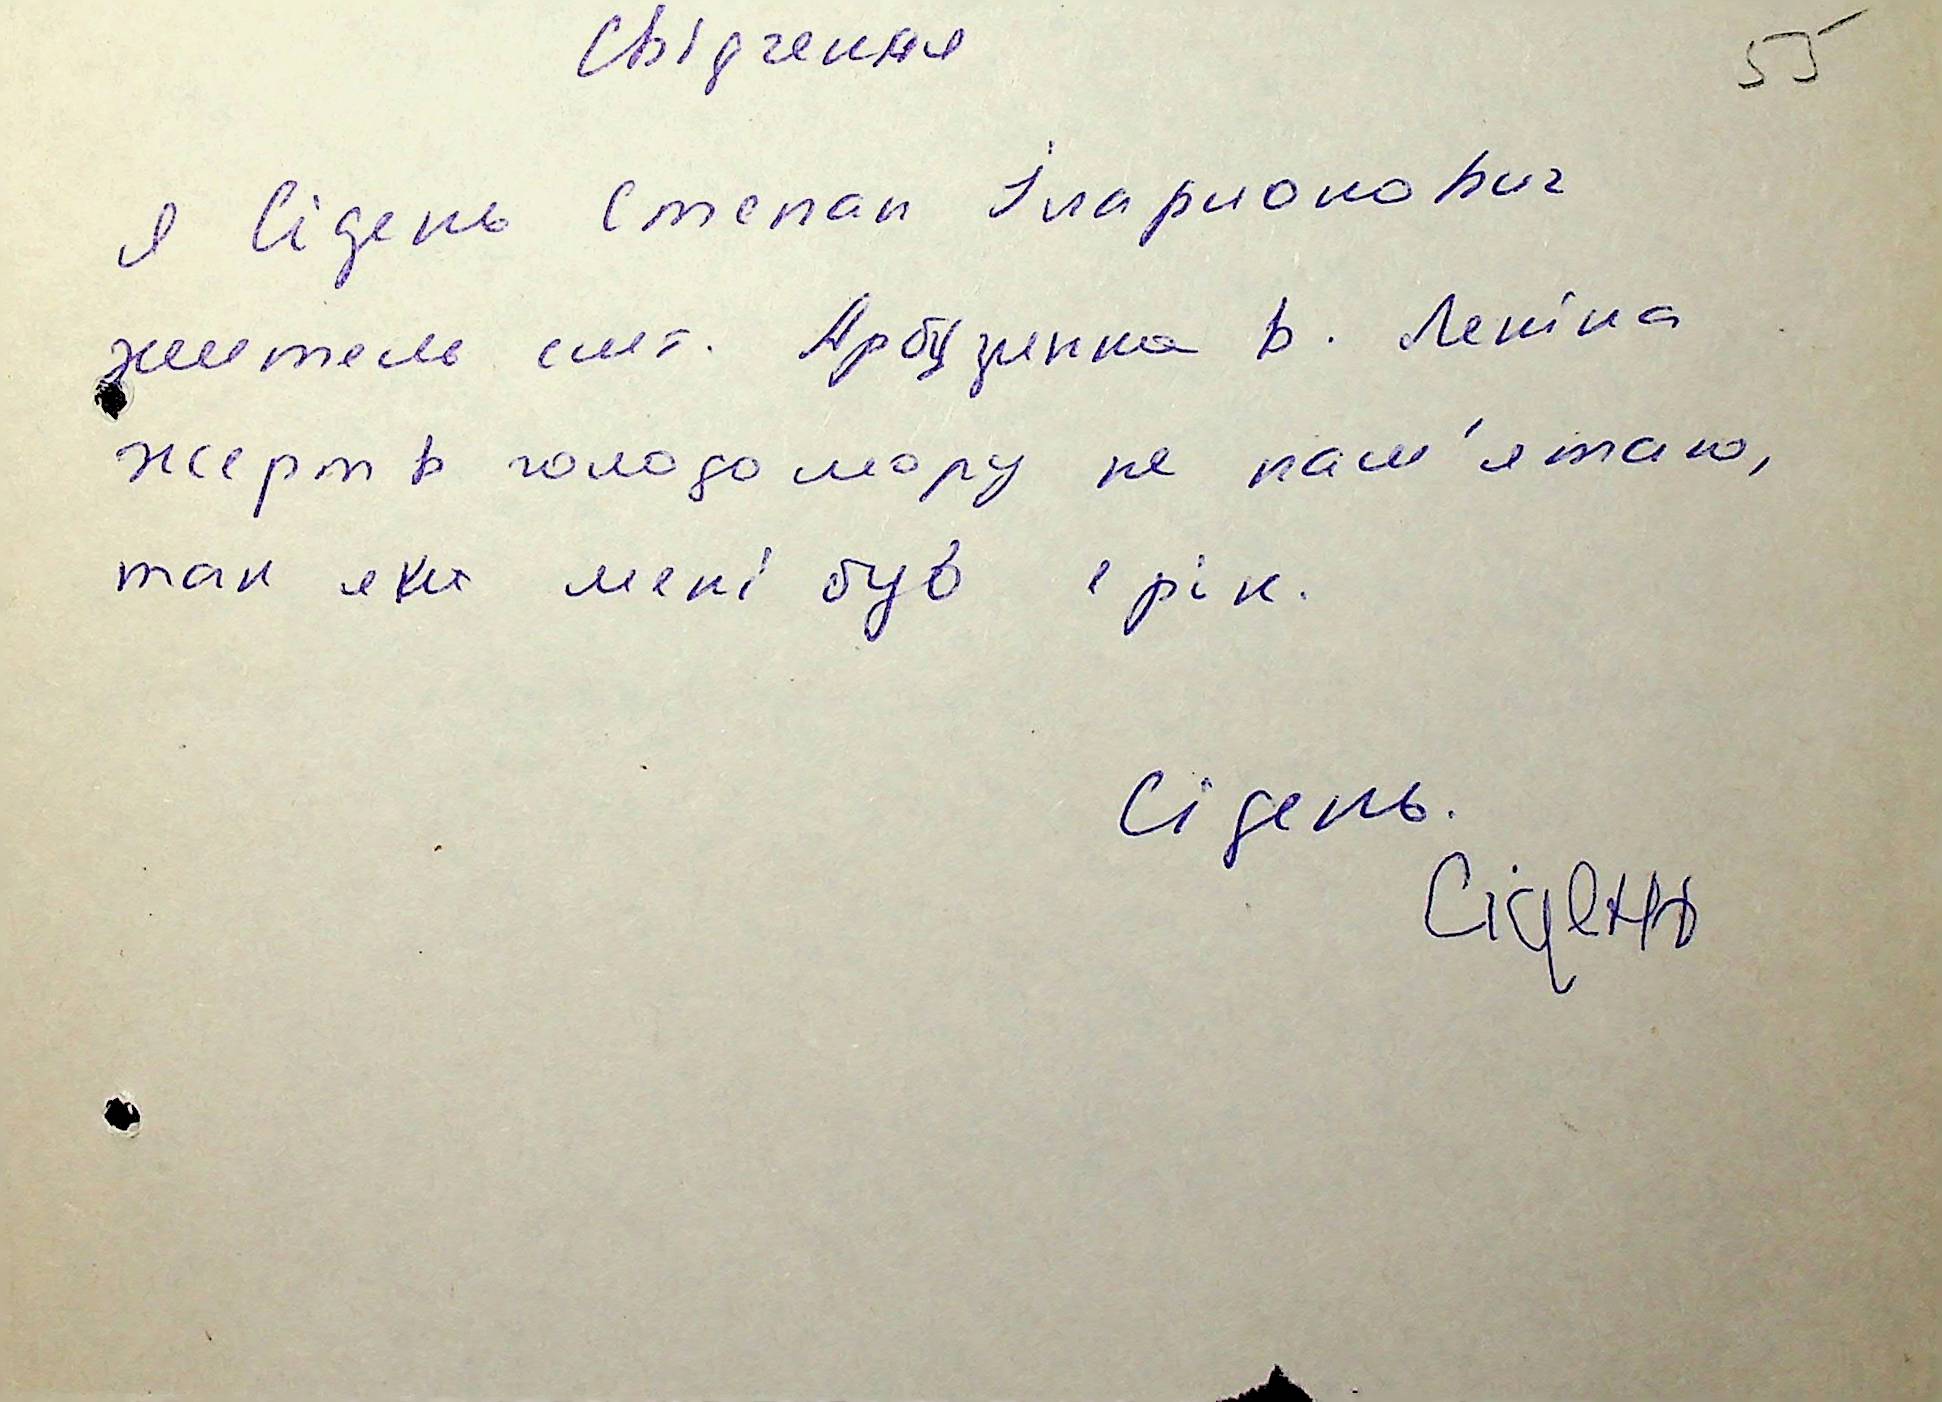 Свідчення
55
Я Сідень Степан Іларионович
житель смт. Арбузинка в. Леніна
жертв голодомору не пам'ятаю,
так як мені був 1 рік.
Сідень.
Сідень